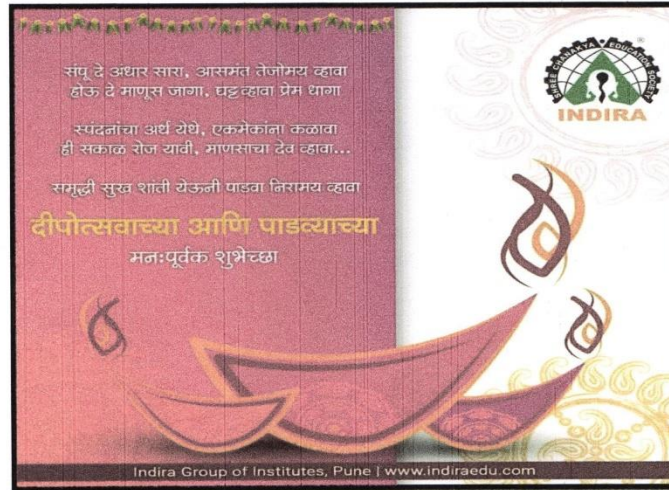 संपू दे अंधार सारा, आसमंत तेजोमय व्हावा
होऊ दे माणूस जागा, घट्ट व्हावा प्रेम धागा
स्पंदनांचा अर्थ येथे, एकमेकांना कळावा
ही सकाळ रोज यावी, माणसाचा देव व्हावा...
समृद्धी सुख शांती येऊनी पाडवा निरामय व्हावा
दीपोत्सवाच्या आणि पाडव्याच्या
मनःपूर्वक शुभेच्छा
SHREE CHANAKYA EDUCATION SOCIETY
INDIRA
Indira Group of Institutes, Pune | www.indiraedu.com